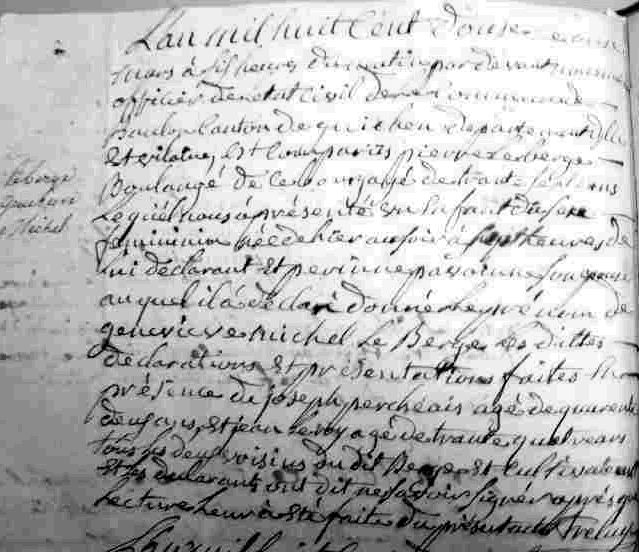 L'an mil huit Cent douse le onse
mars à sis heures du matin par devant nous maire
officier de l'etat civil de la Commune de
Baulon Canton de guichen departement d'ille
Et vilaine, Est Comparus pierre Leberger
Boulangé de age de trante sept ans
Lequel nous à présenté un Enfant du sexe
feminimin née de hier au soir à sept heures de
lui déclarant Et perinne son epouse
auquel il à déclaré donner Le prénom de
genevieve michel Le Berger Les dittes
déclarations Et présentations faites En
présence de joseph percheais agé de quarente
deux ans, Et jean Leroy agé de trante quatre ans
tous les deux voisins du dit Berger Et Cultivateurs
Et les déclarants ont dit ne savoir signer après que
Lecture leur à Eté faite du présent acte
L'an mil huit
leberge
genevieve
Michel